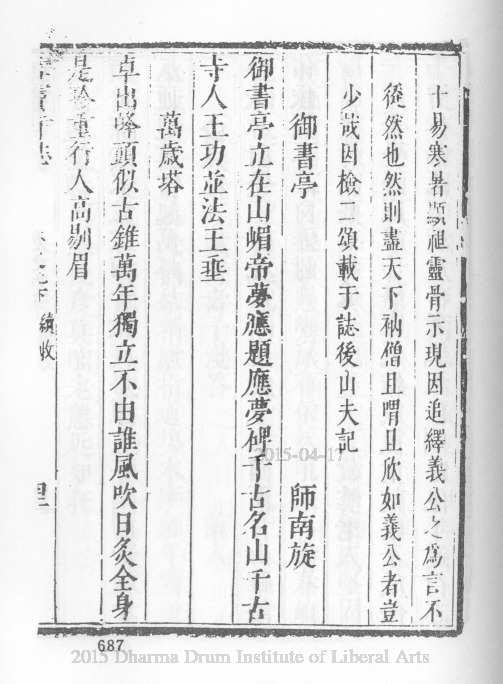 十易寒暑顯祖靈骨示現因追繹義公之爲言不
從然也然則盡天下衲僧且喟且欣如義公者豈
少哉因檢二頌載于誌後山夫記
御書亭 師南旋
御書亭立在山嵋帝夢應題應夢碑千古名山千古
寺人王功並法王垂
萬歲塔
卓出峰頭似古錐萬年獨立不由誰風吹日炙全身
是珍重行人高剔眉
寺志 下 續收
2015-04-17
687
2015 Dharma Drum Institute of Liberal Arts